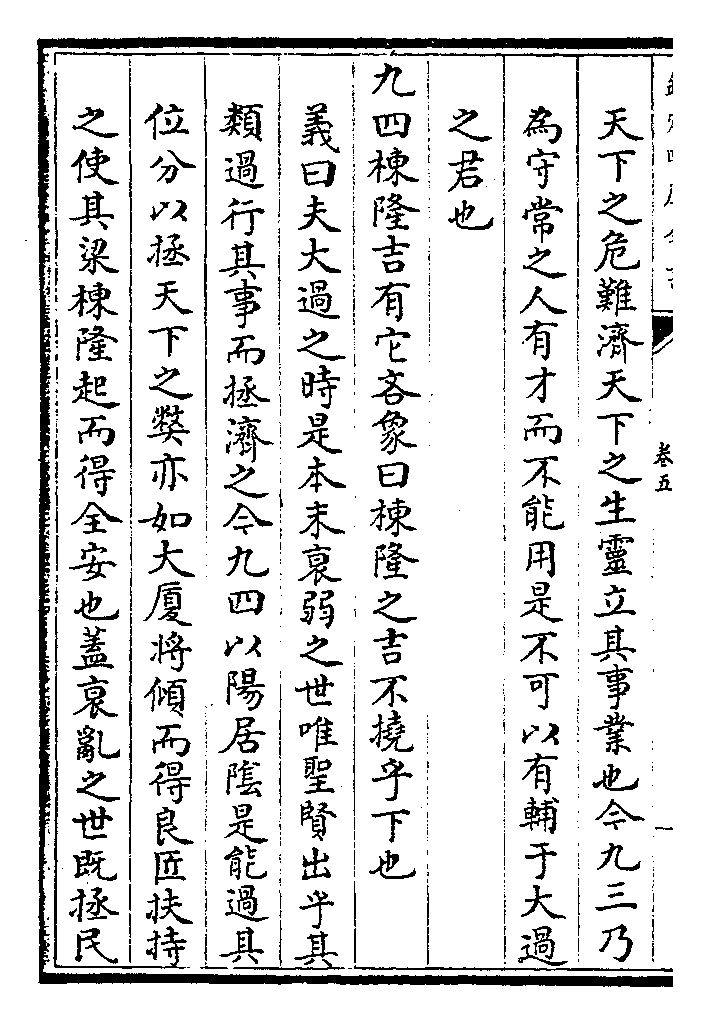 卷五
天下之危難濟天下之生靈立其事業也今九三乃
為守常之人有才而不能用是不可以有輔于大過
之君也
九四棟隆吉有它吝象曰棟隆之吉不撓乎下也
義曰夫大過之時是本末衰弱之世唯聖賢出乎其
類過行其事而拯濟之今九四以陽居隂是能過其
位分以拯天下之弊亦如大厦將傾而得良匠扶持
之使其梁棟隆起而得全安也蓋衰亂之世既拯民